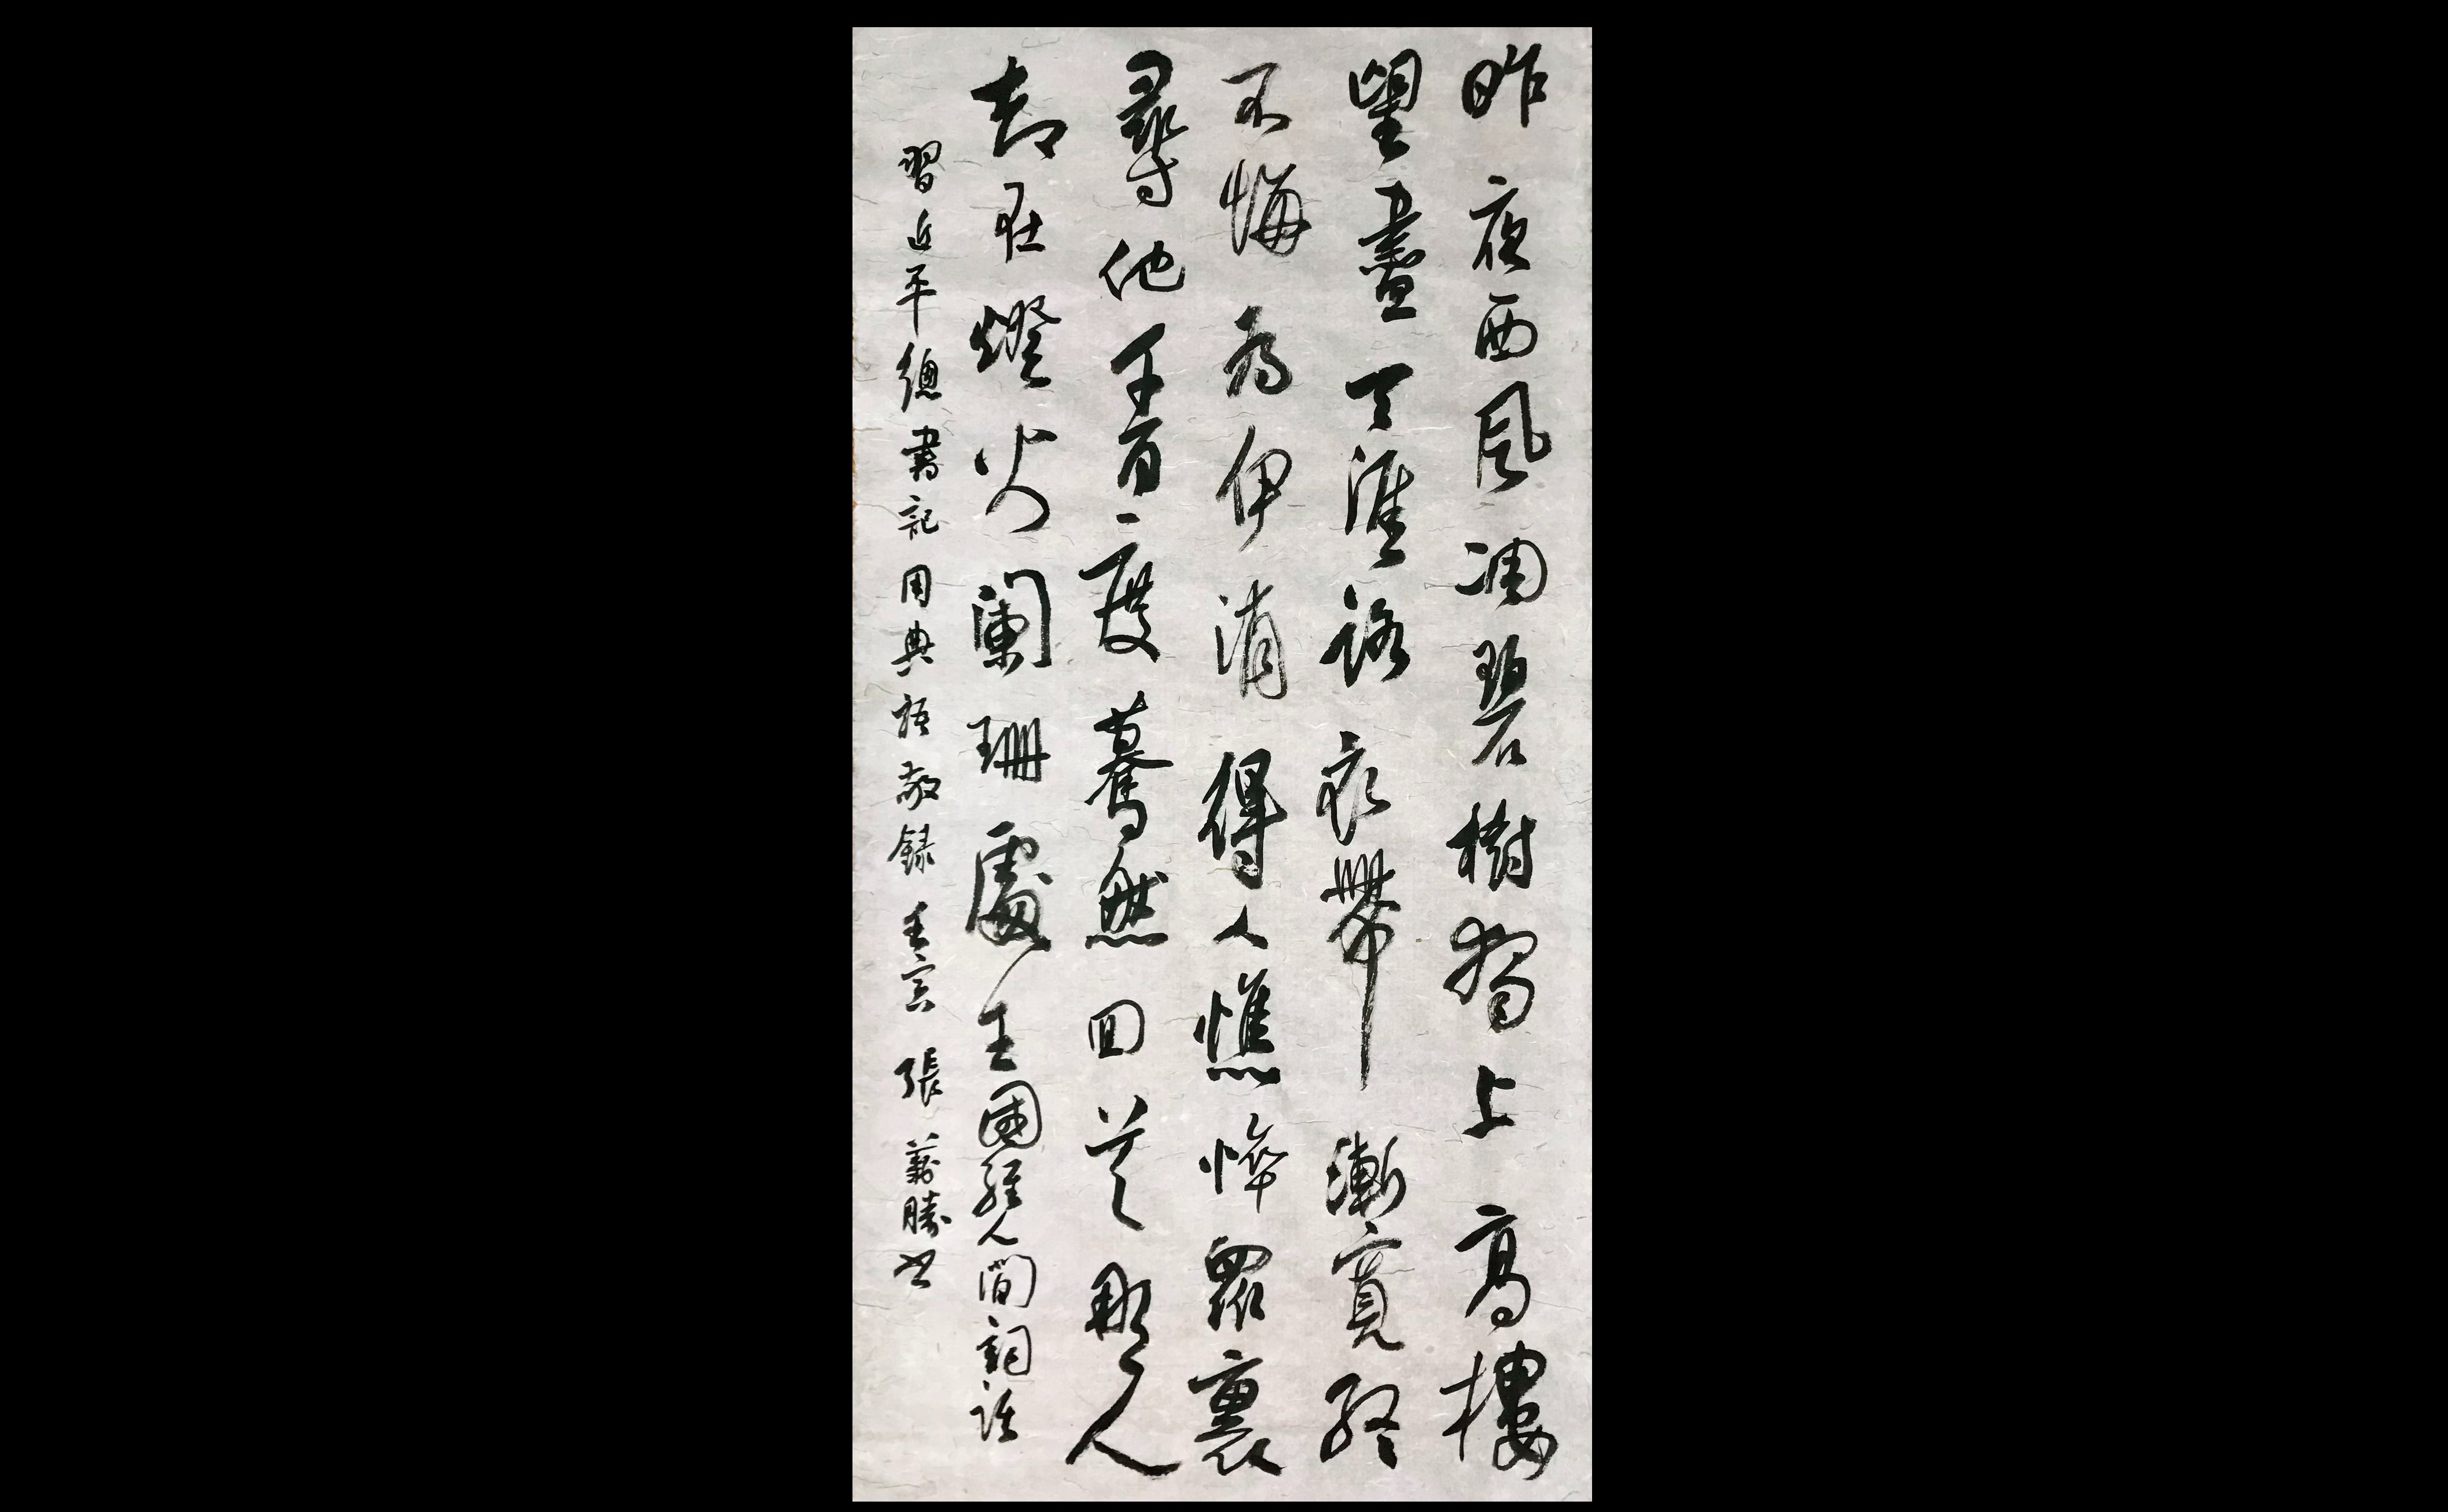 昨夜西風凋碧樹獨上高樓
望盡天涯路衣帶漸寬終
不悔為伊消得人憔悴眾裏
尋他千百度驀然回首那人
却在燈火闌珊處王國維人間詞話
習近平總書記用典語敬録壬寅張藝勝書